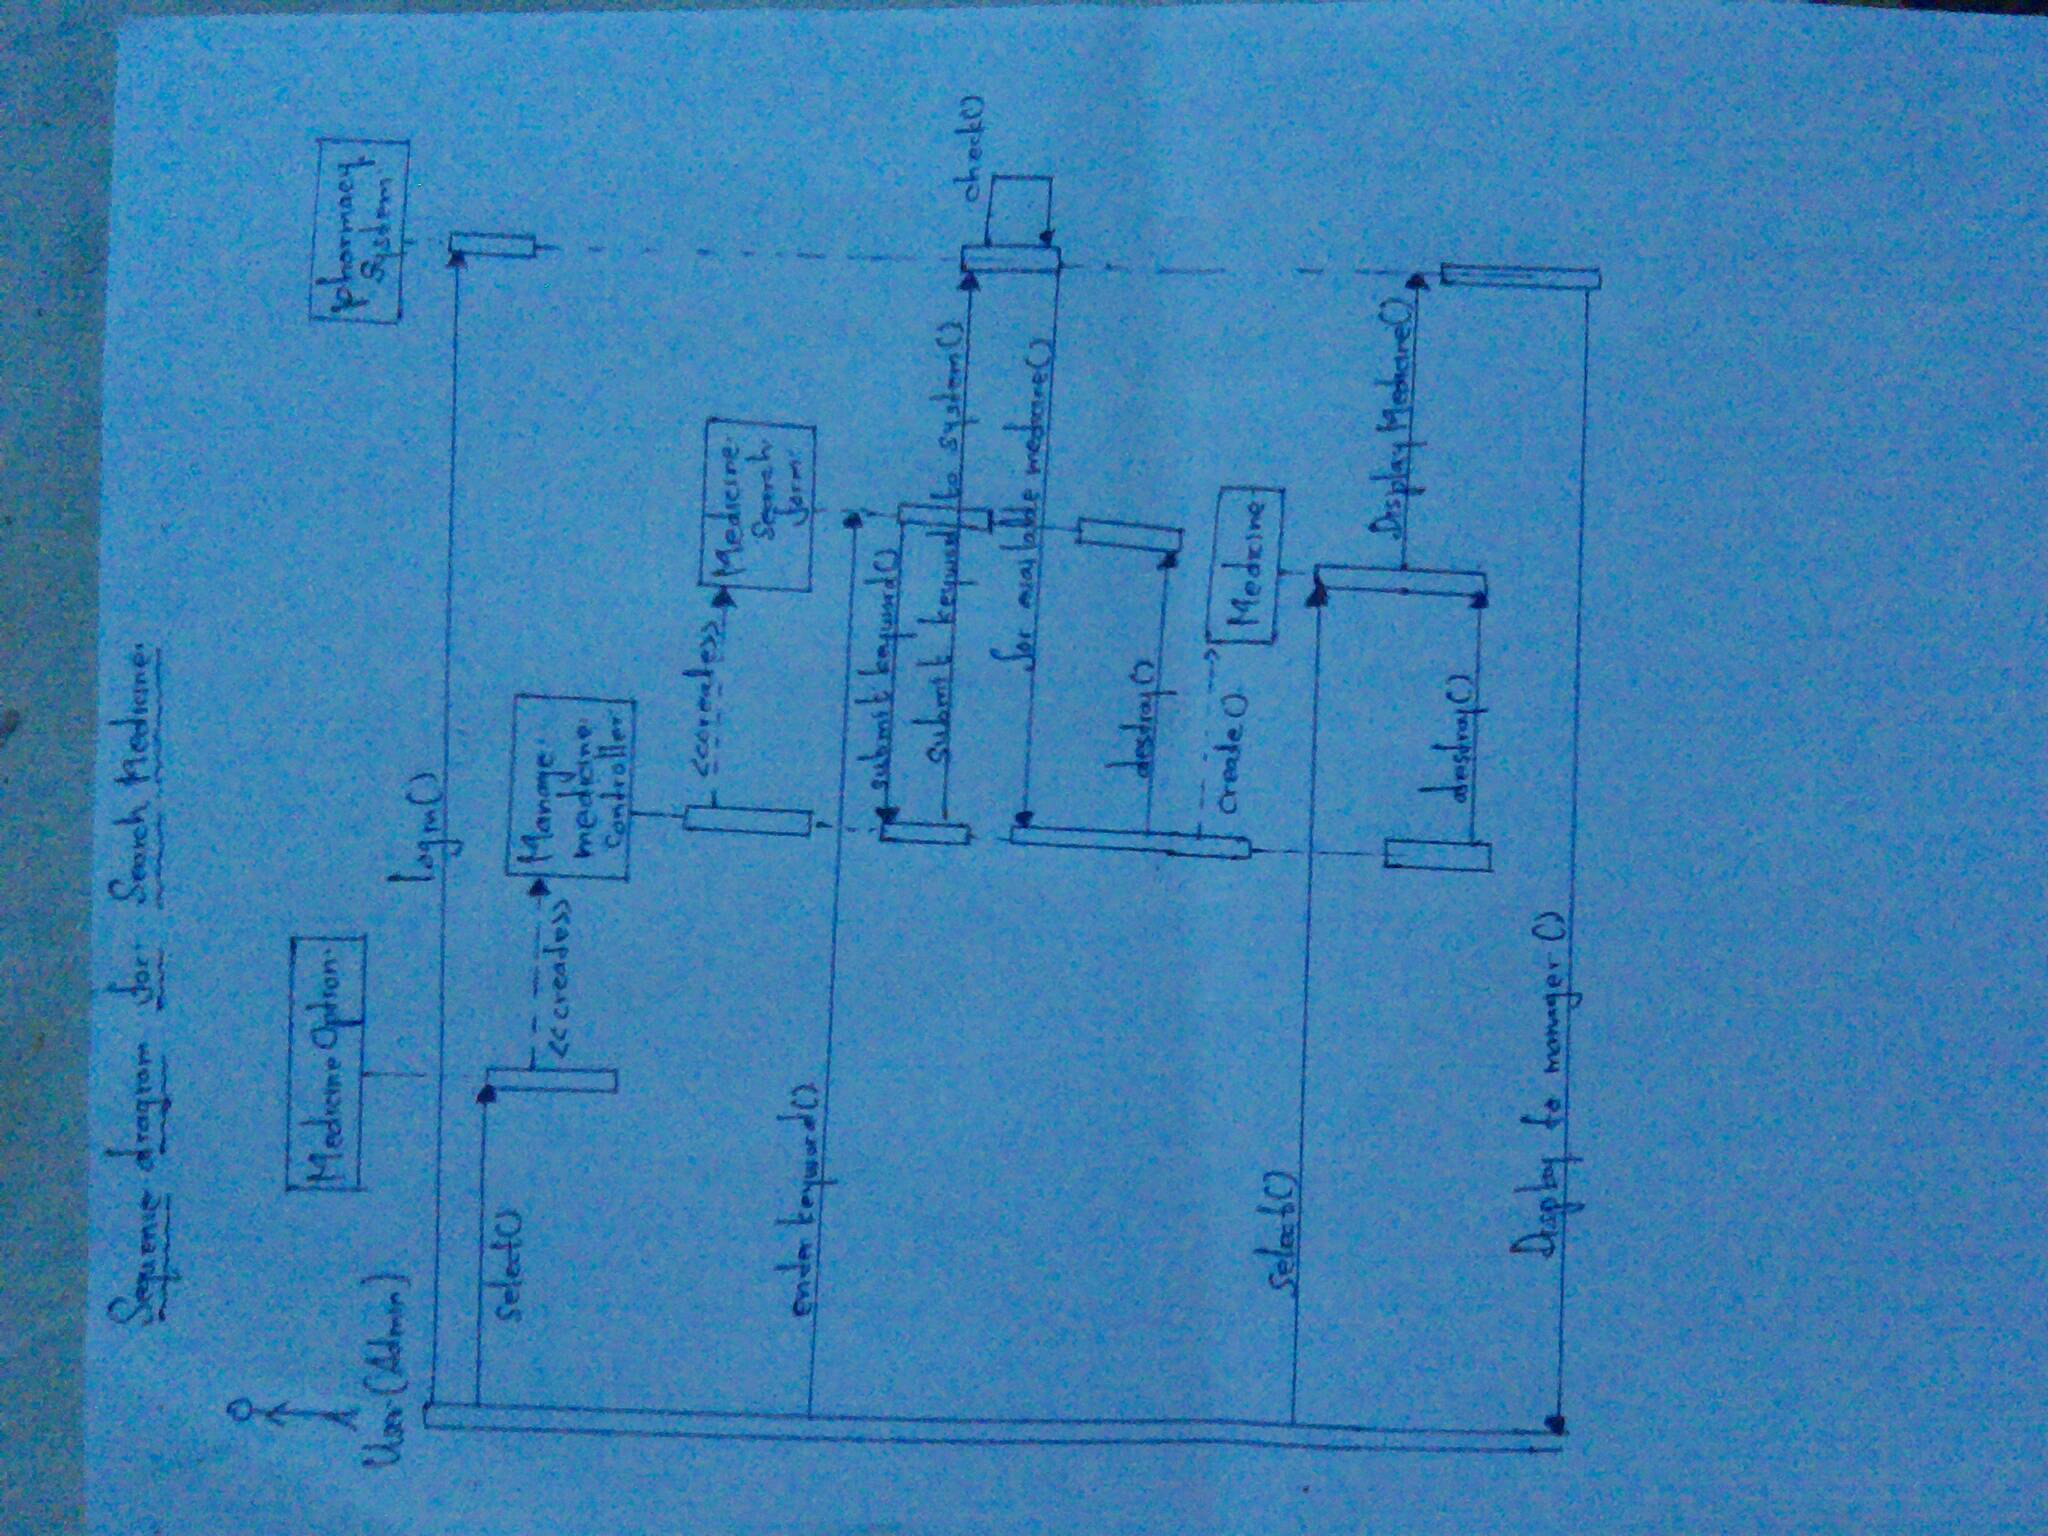 Sequence diagram for Search Medicine
User (Admin)
Medicine Option
pharmacy
System
login()
select()
<<creates>>
Manage
medicine
controller
<<creates>>
Medicine
Search
form
enter keyword()
submit keyword()
submit keyword to system()
check()
for available medicine()
destroy()
create()
Medicine
select()
Display Medicine()
destroy()
Display to manager ()